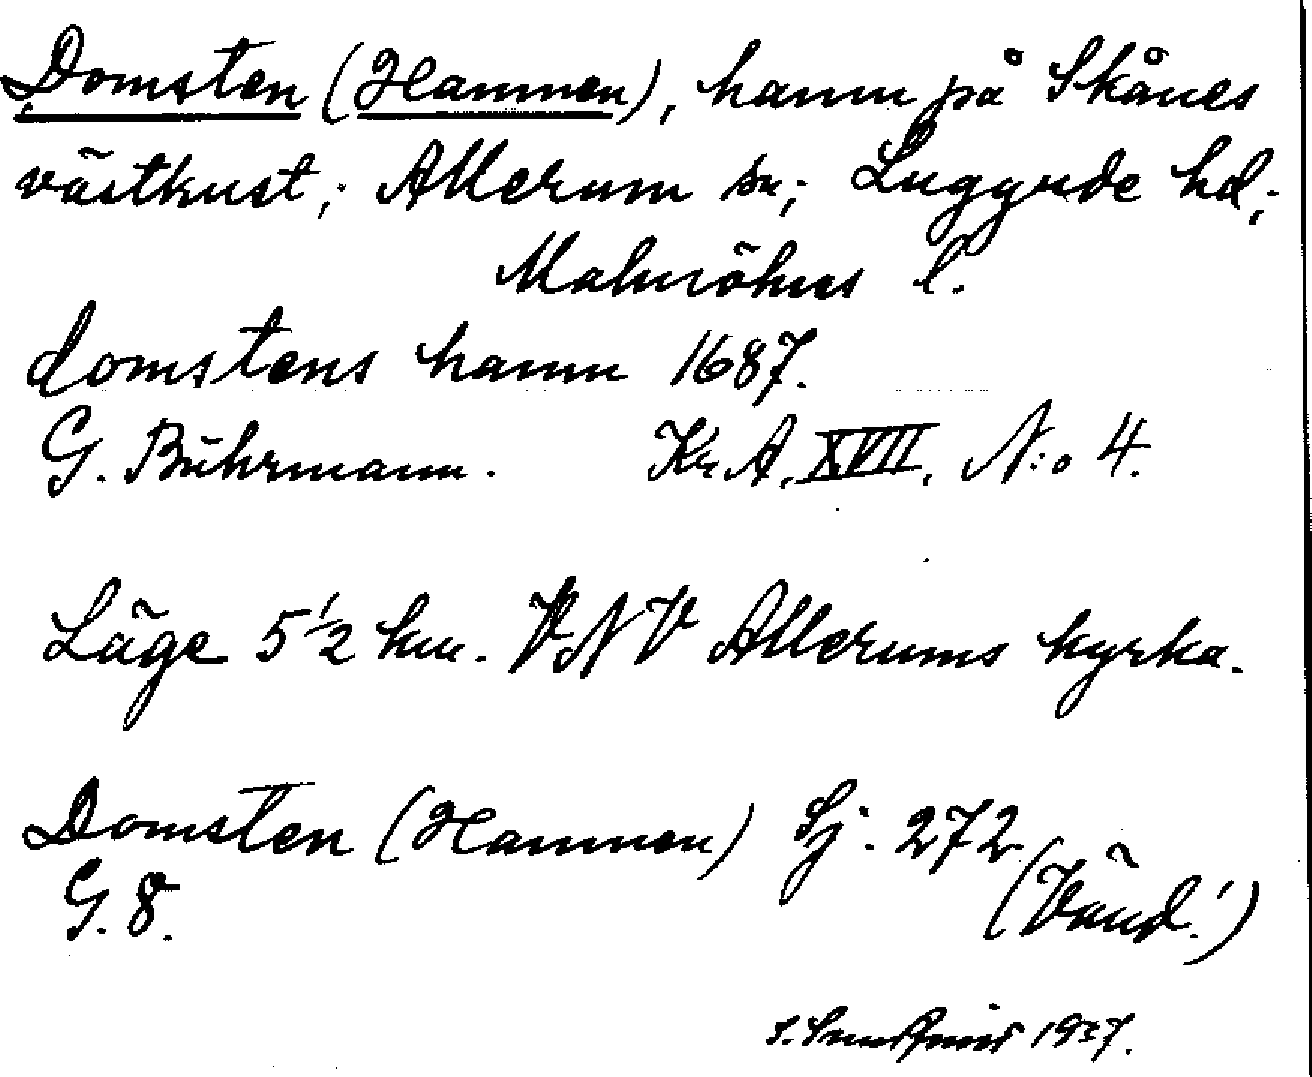 Domsten (Hamnen), hamn på Skånes
västkust; Allerum sn; Luggude hd;
Malmöhus l.
domstens hamn 1687.
G. Buhrmann. Kr.A. XVII. N:o 4.
Läge 5 1/2 km. VNV Allerums kyrka.
Domsten (Hamnen) Sj. 272
G. 8. (Vänd!)
1937.